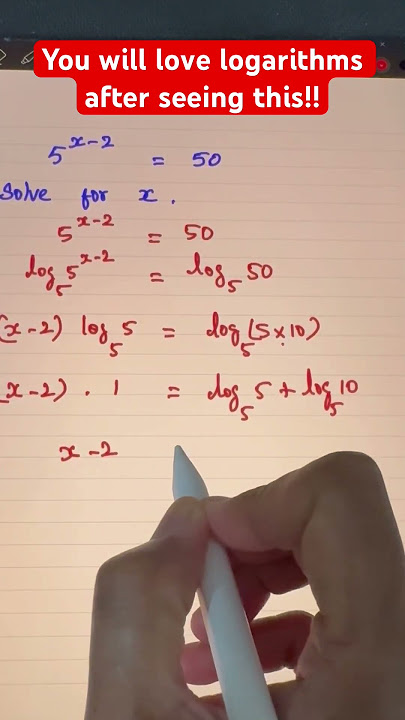 You will love logarithms
after seeing this!!
5^{x-2} = 50
Solve for x.
5^{x-2} = 50
log₅ 5^{x-2} = log₅ 50
(x-2) log₅ 5 = log₅ (5×10)
(x-2) . 1 = log₅ 5 + log₅ 10
x-2